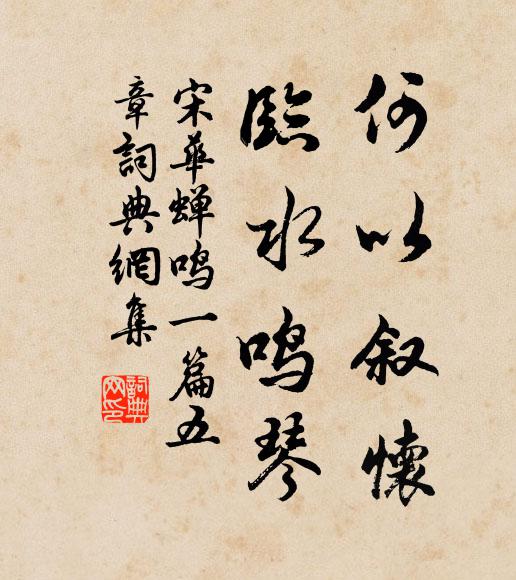 何以叙懷
臨水鸣琴
宋華蝉鸣一篇五
章詞典網集
詞典
网印